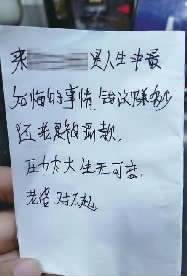 来 是人生中最
后悔的事情.错没赚多少
还老是被罚款.
压力太大生无可恋.
老婆.对不起